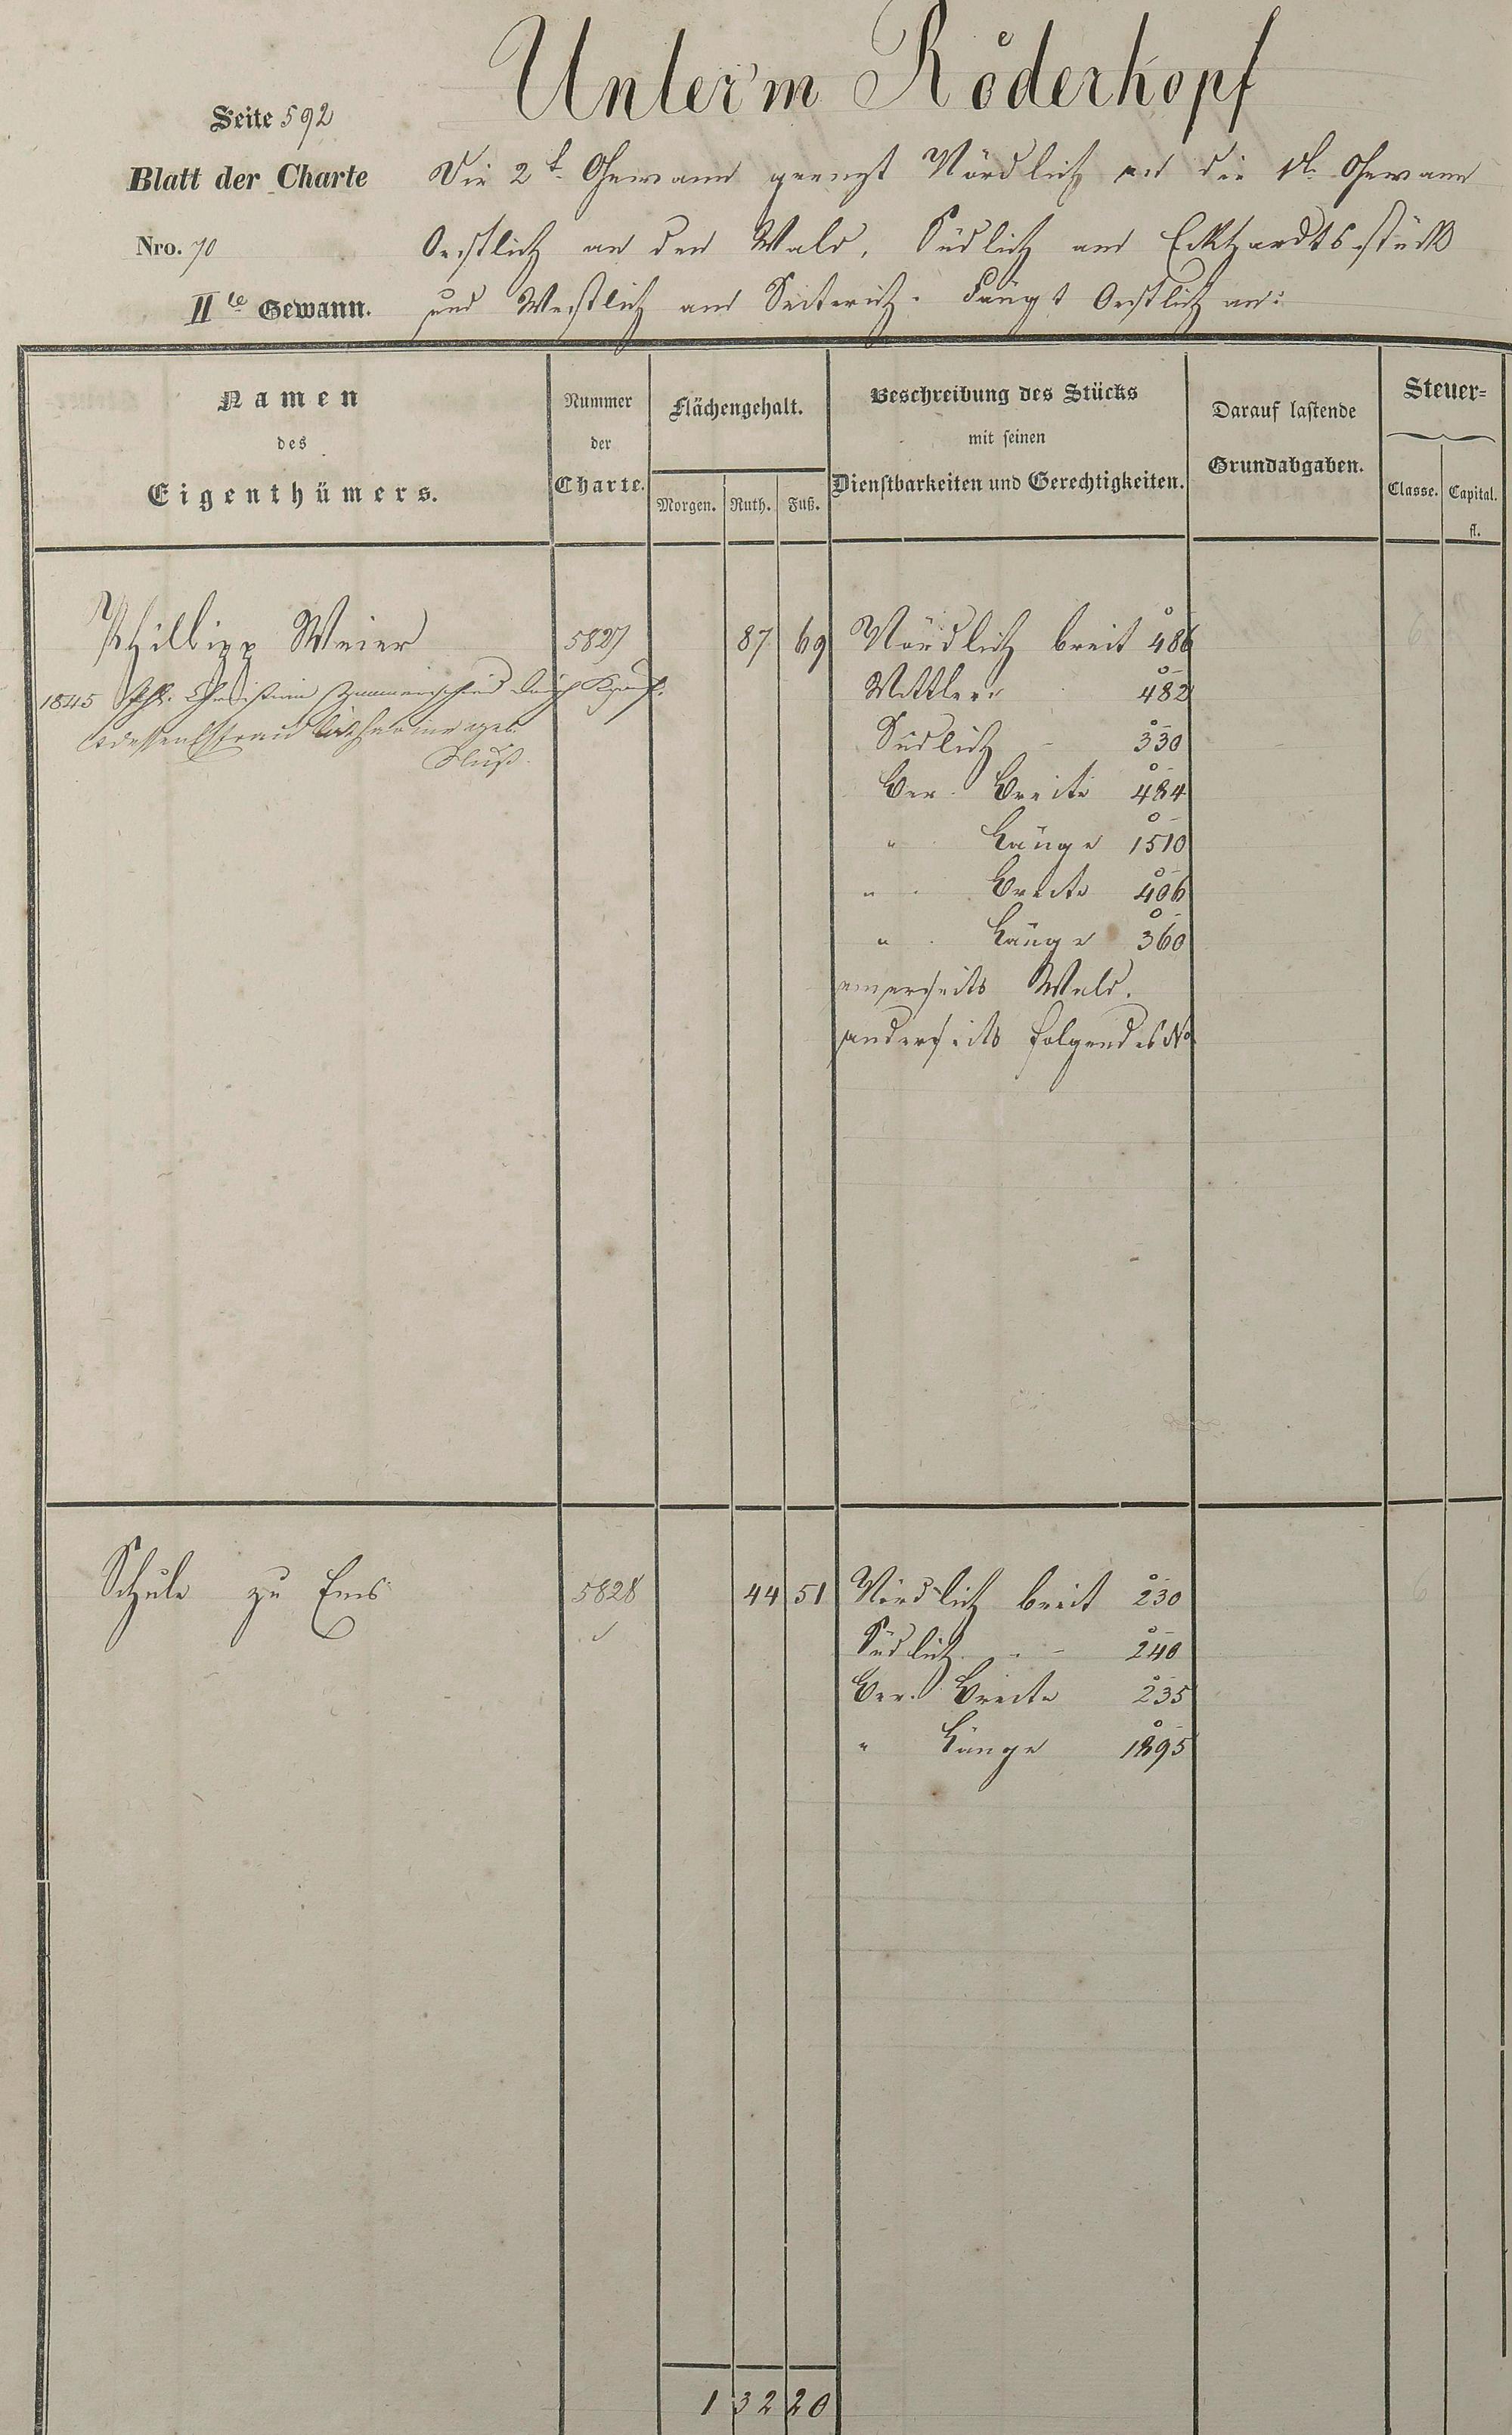 Unter'm Röderkopf
Seite 592
Blatt der Charte
Nro. 70
IIte Gewann.
Die 2te Gewann grenzt Nördlich an die 1te Gewann
Oestlich an den Wald, Südlich am Eckhardtsstück
und Westlich am Seiterich. Fängt Oestlich an:
Namen des Eigenthümers.
Nummer der Charte.
Flächengehalt.
Morgen. Ruth. Fuß.
Beschreibung des Stücks
mit seinen
Dienstbarkeiten und Gerechtigkeiten.
Darauf lastende
Grundabgaben.
Steuer-
Classe. Capital.
fl.
Phillipp Weier 5827 87 69 Nördlich breit 486
1845 Christian Zimmerschied durch Kauf.
Mittler 482
Catharine geb.
Südlich - 330
Ber. Breite 484
" Länge 1510
" Breite 406
" Länge 360
einerseits Wald.
anderseits folgendes No
Schule zu Ems 5828 44 51 Nördlich breit 230
Südlich - 240
Ber. Breite 235
" Länge 1895
1 32 20